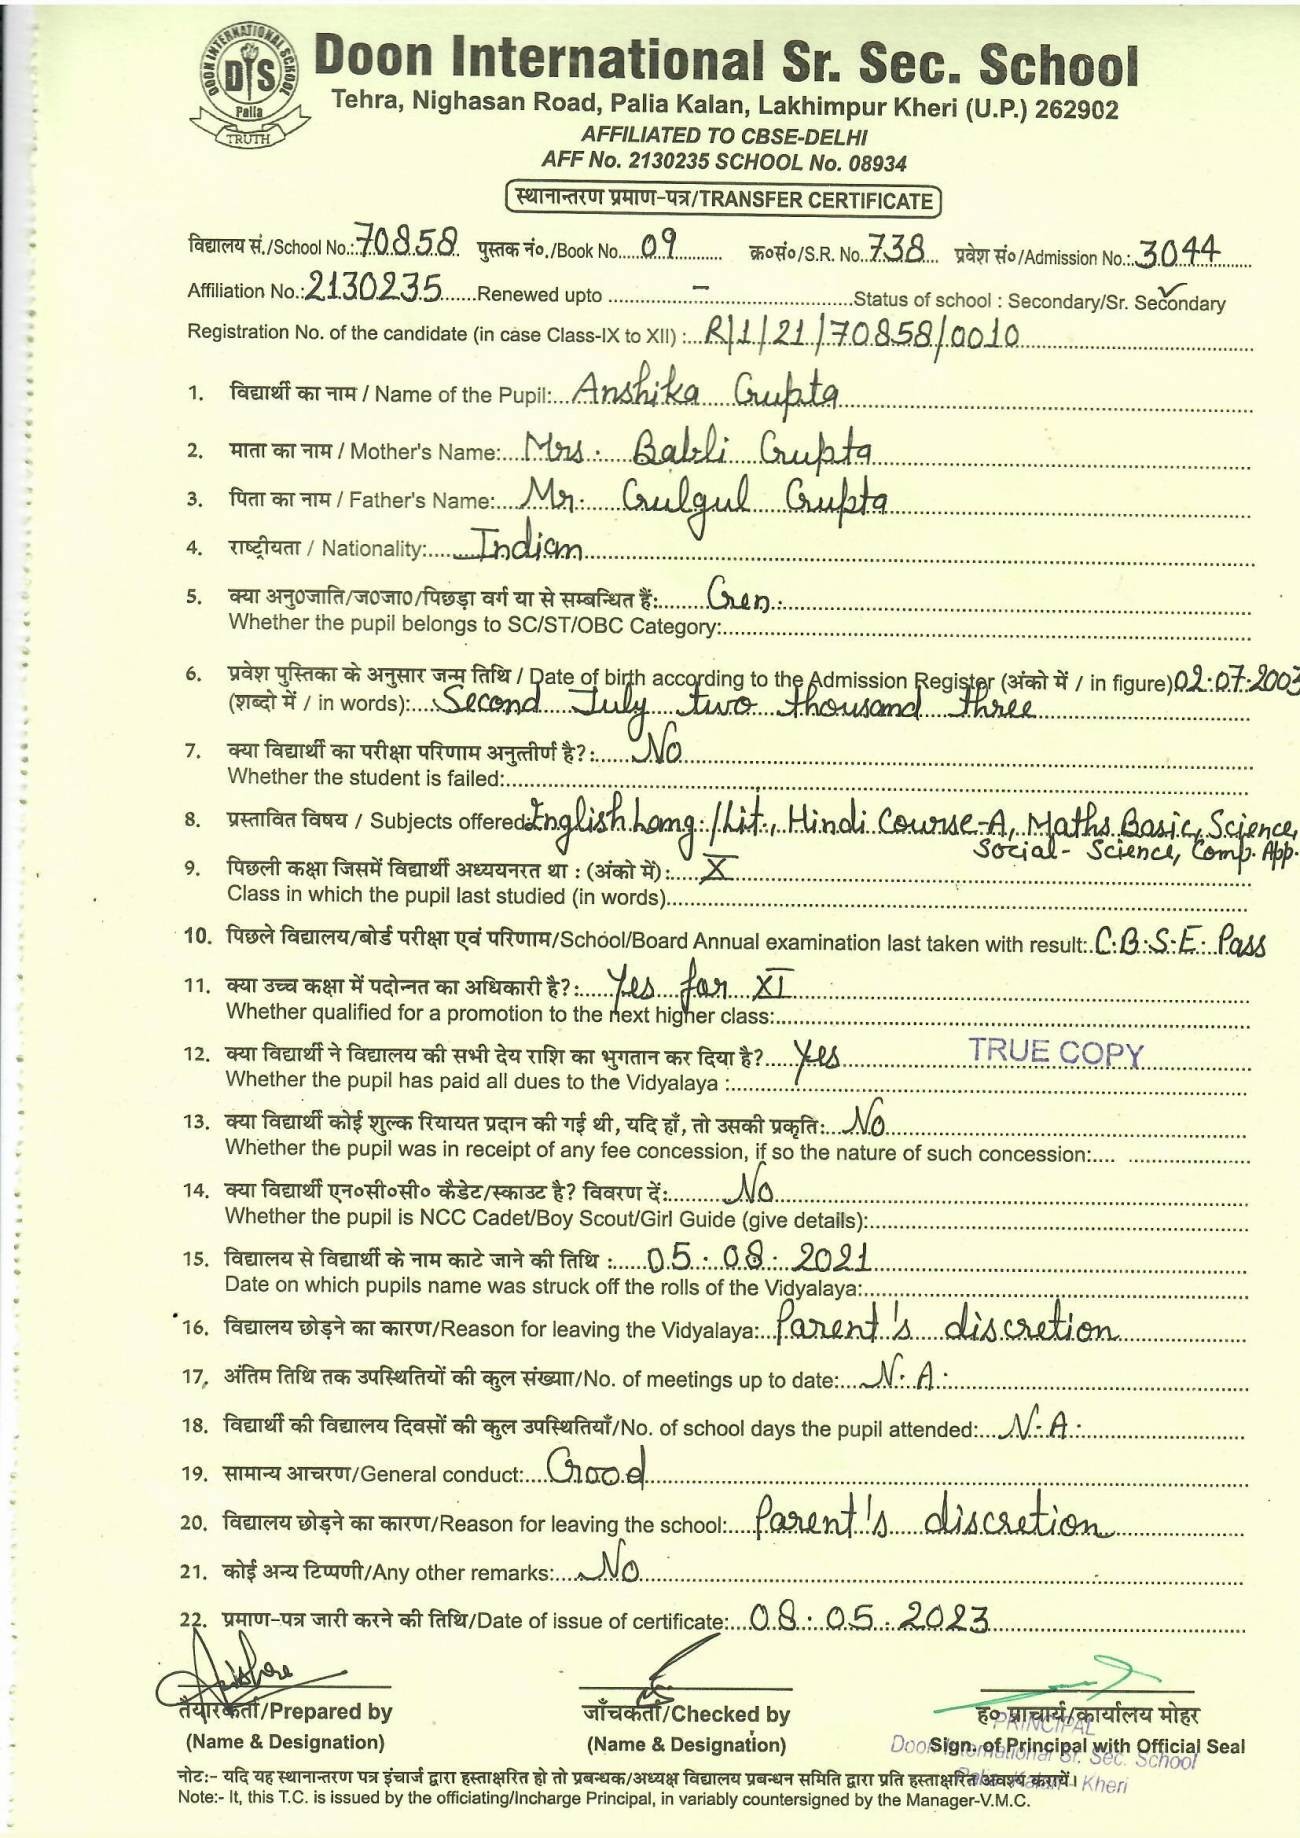 DOON INTERNATIONAL SCHOOL
DIS
Palia
TRUTH
Doon International Sr. Sec. School
Tehra, Nighasan Road, Palia Kalan, Lakhimpur Kheri (U.P.) 262902
AFFILIATED TO CBSE-DELHI
AFF No. 2130235 SCHOOL No. 08934
स्थानान्तरण प्रमाण-पत्र/TRANSFER CERTIFICATE
विद्यालय सं./School No.:70858 पुस्तक नं०./Book No.....09........... क्र०सं०/S.R. No..738.... प्रवेश सं०/Admission No.:.3044
Affiliation No.:2130235.......Renewed upto ..........-..........Status of school : Secondary/Sr. Secondary ✓
Registration No. of the candidate (in case Class-IX to XII) :...R/1/21/70858/0010
1. विद्यार्थी का नाम / Name of the Pupil:...Anshika Gupta
2. माता का नाम / Mother's Name:....Mrs. Babli Gupta
3. पिता का नाम / Father's Name:....Mr. Gulgul Gupta
4. राष्ट्रीयता / Nationality:......Indian
5. क्या अनु0जाति/ज0जा0/पिछड़ा वर्ग या से सम्बन्धित हैं:........Gen.
Whether the pupil belongs to SC/ST/OBC Category:
6. प्रवेश पुस्तिका के अनुसार जन्म तिथि / Date of birth according to the Admission Register (अंको में / in figure)02.07.2003
(शब्दो में / in words):....Second July two thousand three
7. क्या विद्यार्थी का परीक्षा परिणाम अनुत्तीर्ण है?:......No
Whether the student is failed:
8. प्रस्तावित विषय / Subjects offered:English Lang./Lit., Hindi Course-A, Maths Basic, Science,
Social-Science, Comp. App.
9. पिछली कक्षा जिसमें विद्यार्थी अध्ययनरत था : (अंको में):.....X
Class in which the pupil last studied (in words)
10. पिछले विद्यालय/बोर्ड परीक्षा एवं परिणाम/School/Board Annual examination last taken with result:.C.B.S.E. Pass
11. क्या उच्च कक्षा में पदोन्नत का अधिकारी है?:.....Yes for XI
Whether qualified for a promotion to the next higher class:
12. क्या विद्यार्थी ने विद्यालय की सभी देय राशि का भुगतान कर दिया है?.....Yes TRUE COPY
Whether the pupil has paid all dues to the Vidyalaya :
13. क्या विद्यार्थी कोई शुल्क रियायत प्रदान की गई थी, यदि हाँ, तो उसकी प्रकृति:...No
Whether the pupil was in receipt of any fee concession, if so the nature of such concession:....
14. क्या विद्यार्थी एन०सी०सी० कैडेट/स्काउट है? विवरण दें:........No
Whether the pupil is NCC Cadet/Boy Scout/Girl Guide (give details):
15. विद्यालय से विद्यार्थी के नाम काटे जाने की तिथि :.....05.08.2021
Date on which pupils name was struck off the rolls of the Vidyalaya:
16. विद्यालय छोड़ने का कारण/Reason for leaving the Vidyalaya:..Parent's discretion
17. अंतिम तिथि तक उपस्थितियों की कुल संख्या/No. of meetings up to date:....N.A.
18. विद्यार्थी की विद्यालय दिवसों की कुल उपस्थितियाँ/No. of school days the pupil attended:...N.A.
19. सामान्य आचरण/General conduct:....Good
20. विद्यालय छोड़ने का कारण/Reason for leaving the school:....Parent's discretion
21. कोई अन्य टिप्पणी/Any other remarks:....No
22. प्रमाण-पत्र जारी करने की तिथि/Date of issue of certificate:...08.05.2023
तैयारकर्ता/Prepared by जाँचकर्ता/Checked by ह० प्राचार्य/कार्यालय मोहर
PRINCIPAL
(Name & Designation) (Name & Designation) Sign. of Principal with Official Seal
Doon International Sr. Sec. School
Palia Kalan Kheri
नोट:- यदि यह स्थानान्तरण पत्र इंचार्ज द्वारा हस्ताक्षरित हो तो प्रबन्धक/अध्यक्ष विद्यालय प्रबन्धन समिति द्वारा प्रति हस्ताक्षरित अवश्य करायें।
Note:- It, this T.C. is issued by the officiating/Incharge Principal, in variably countersigned by the Manager-V.M.C.